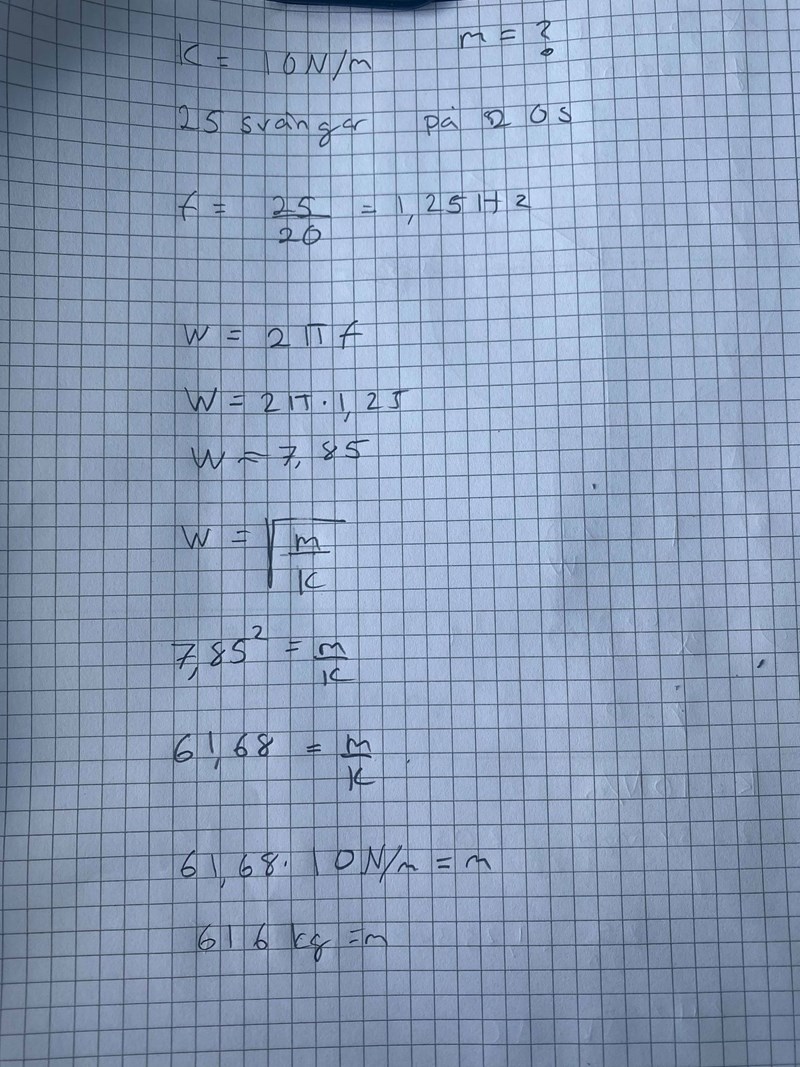 K = 10 N/m m = ?
25 svängar på 20s
f = 25/20 = 1,25 Hz
W = 2πf
W = 2π · 1,25
W ≈ 7,85
W = √(m/K)
7,85² = m/K
61,68 = m/K
61,68 · 10 N/m = m
616 kg = m